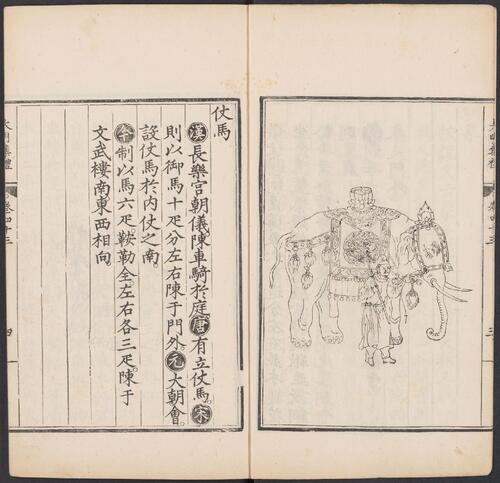 大明集禮
卷四十三
三
仗馬
漢長樂宮朝儀陳車騎於庭唐有立仗馬宋
則以御馬十疋分左右陳于門外。元大朝會。
設仗馬於内仗之南。
今制以馬六疋。鞍勒全。左右各三疋。陳于
文武樓南東西相向。
大明集禮
卷四十三
四